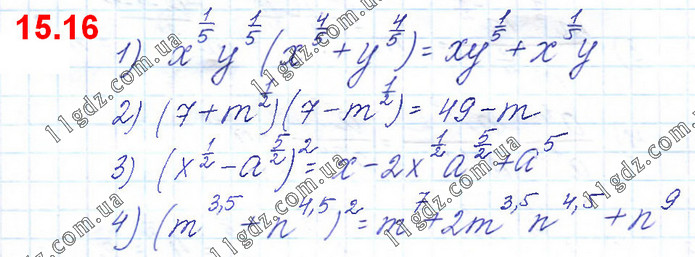 15.16
1) x^{1/5} y^{1/5} (x^{4/5} + y^{4/5}) = xy^{1/5} + x^{1/5} y
2) (7 + m^{1/2})(7 - m^{1/2}) = 49 - m
3) (x^{1/2} - a^{5/2})^2 = x - 2x^{1/2} a^{5/2} + a^5
4) (m^{3,5} + n^{4,5})^2 = m^7 + 2m^{3,5} n^{4,5} + n^9
11gdz.com.ua
11gdz.com.ua
11gdz.com.ua
11gdz.com.ua
11gdz.com.ua
11gdz.com.ua